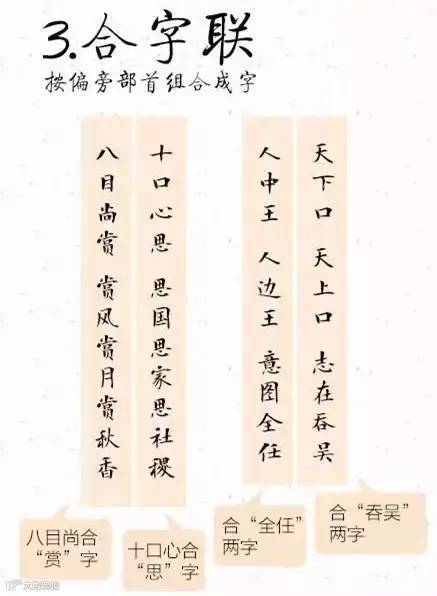 3.合字联
按偏旁部首组合成字
天下口 天上口 志在吞吴
人中王 人边王 意图全任
十口心思 思国思家思社稷
八目尚赏 赏风赏月赏秋香
八目尚合
“赏”字
十口心合
“思”字
合“全任”
两字
合“吞吴”
两字